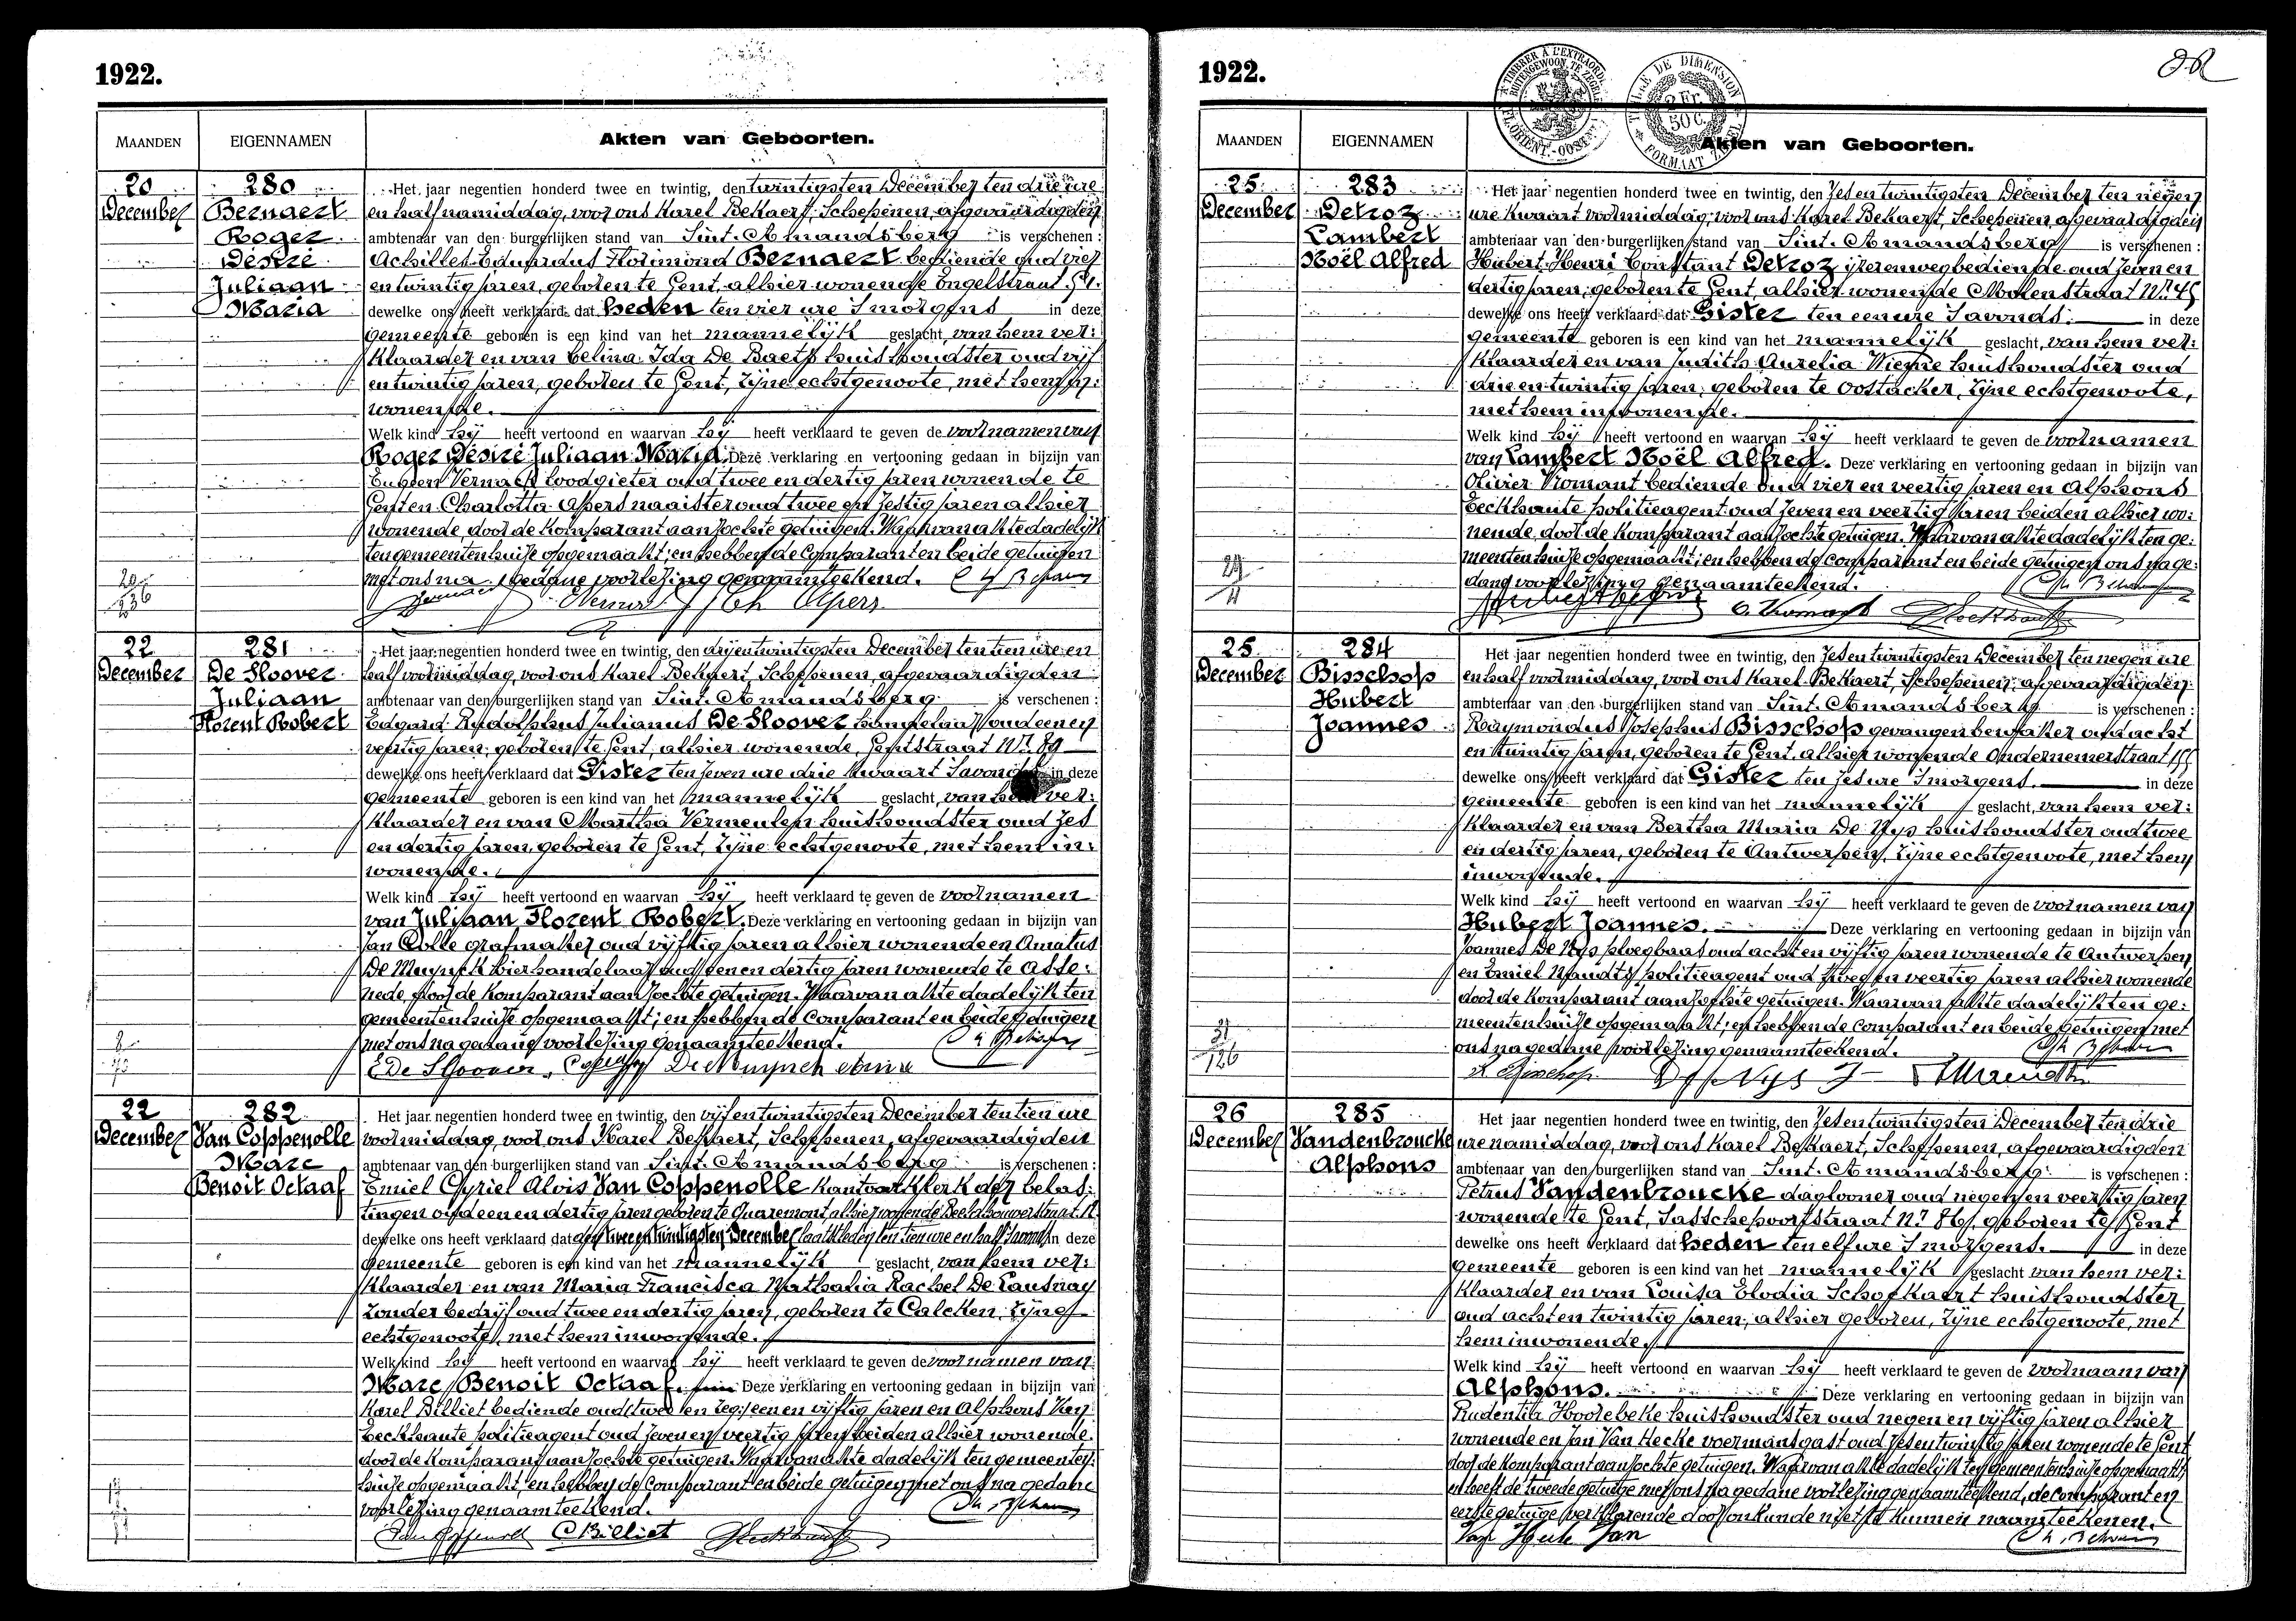 1922.
MAANDEN
EIGENNAMEN
Akten van Geboorten.
20
December
280
Bernaert
Roger
Désiré
Juliaan
Maria
Het jaar negentien honderd twee en twintig, den twintigsten December ten drie ure
en half namiddag, voor ons Karel Bekaert, Schepenen, afgevaardigden
ambtenaar van den burgerlijken stand van Sint-Amandsberg is verschenen :
Achilles Eduardus Florimond Bernaert bediende oud vier
en twintig jaren, geboren te Gent, alhier wonende Engelstraat
dewelke ons heeft verklaard dat heden ten vier ure s'morgens in deze
gemeente geboren is een kind van het mannelijk geslacht, van hem ver:
klaarder en van Celina Ida De Baets huishoudster oud vijf
en twintig jaren, geboren te Gent, zijne echtgenoote, met hem in:
wonende.
Welk kind hij heeft vertoond en waarvan hij heeft verklaard te geven de voornamen van
Roger Désiré Juliaan Maria. Deze verklaring en vertooning gedaan in bijzijn van
Eugeen loodgieter oud twee en dertig jaren wonende te
Gent en Charlotta Aspers naaister oud twee en zestig jaren alhier
wonende, door de komparant aanzochte getuigen. Waarvan akte dadelijk
ten gemeentenhuize opgemaakt; en hebben de Comparant en beide getuigen
met ons na gedane voorlezing genaamteekend.
22
December
281
De Sloover
Juliaan
Florent Robert
Het jaar negentien honderd twee en twintig, den drij en twintigsten December ten tien ure en
half voormiddag, voor ons Karel Bekaert, Schepenen, afgevaardigden
ambtenaar van den burgerlijken stand van Sint-Amandsberg is verschenen :
Edgard Rudolphus Julianus De Sloover handelaar oud een en
veertig jaren, geboren te Gent, alhier wonende, Gentstraat Nr. 89
dewelke ons heeft verklaard dat Gister ten zeven ure drie kwaart s'avonds in deze
gemeente geboren is een kind van het mannelijk geslacht, van hem ver:
klaarder en van Martha Vermeulen huishoudster oud zes
en dertig jaren, geboren te Gent, zijne echtgenoote, met hem in:
wonende.
Welk kind hij heeft vertoond en waarvan hij heeft verklaard te geven de voornamen
van Juliaan Florent Robert. Deze verklaring en vertooning gedaan in bijzijn van
Jan Colle grafmaker oud vijftig jaren alhier wonende en Amatus
De Muynck bierhandelaar oud een en dertig jaren wonende te Asse:
nede, door de komparant aanzochte getuigen. Waarvan akte dadelijk ten
gemeentenhuize opgemaakt; en hebben de Comparant en beide getuigen
met ons na gedane voorlezing genaamteekend.
E De Sloover
22
December
282
Van Coppenolle
Marc
Benoit Octaaf
Het jaar negentien honderd twee en twintig, den vijf en twintigsten December ten tien ure
voormiddag, voor ons Karel Bekaert, Schepenen, afgevaardigden
ambtenaar van den burgerlijken stand van Sint-Amandsberg is verschenen :
Emiel Cyriel Alois Van Coppenolle kantoorklerk der belas:
tingen oud een en dertig jaren geboren te Quaremont alhier wonende Beeldhouwerstraat
dewelke ons heeft verklaard dat den twee en twintigsten December laatstleden ten tien ure en half s'avonds in deze
gemeente geboren is een kind van het mannelijk geslacht, van hem ver:
klaarder en van Maria Francisca Nathalia Rachel De Causmay
zonder bedrijf oud twee en dertig jaren, geboren te Calcken, zijne
echtgenoote, met hem inwonende.
Welk kind hij heeft vertoond en waarvan hij heeft verklaard te geven de voornamen van
Marc Benoit Octaaf. Deze verklaring en vertooning gedaan in bijzijn van
Karel Billiet bediende oud een en vijftig jaren en Alphons
Eeckhaute politieagent oud zeven en veertig jaren beiden alhier wonende.
door de komparant aanzochte getuigen. Waarvan akte dadelijk ten gemeenten:
huize opgemaakt, en hebben de Comparant en beide getuigen met ons na gedane
voorlezing genaamteekend.
C Billiet
1922.
MAANDEN
EIGENNAMEN
Akten van Geboorten.
25
December
283
Detroz
Lambert
Noël Alfred
Het jaar negentien honderd twee en twintig, den zes en twintigsten December ten negen
ure kwaart voormiddag, voor ons Karel Bekaert, Schepenen, afgevaardigden
ambtenaar van den burgerlijken stand van Sint-Amandsberg is verschenen :
Hubert Henri Constant Detroz ijzerenwegbediende oud zeven en
dertig jaren, geboren te Gent, alhier wonende Molenstraat
dewelke ons heeft verklaard dat Gister ten een ure s'avonds in deze
gemeente geboren is een kind van het mannelijk geslacht, van hem ver:
klaarder en van Judith Aurelia Wiemé huishoudster oud
drie en twintig jaren, geboren te Oostacker, zijne echtgenoote,
met hem inwonende.
Welk kind hij heeft vertoond en waarvan hij heeft verklaard te geven de voornamen
van Lambert Noël Alfred. Deze verklaring en vertooning gedaan in bijzijn van
Olivier Vromant bediende oud vier en veertig jaren en Alphons
Eeckhaute politieagent oud zeven en veertig jaren beiden alhier wo:
nende, door de komparant aanzochte getuigen. Waarvan akte dadelijk ten ge:
meentenhuize opgemaakt; en hebben de comparant en beide getuigen ons na ge:
dane voorlezing genaamteekend.
25
December
284
Bisschop
Hubert
Joannes
Het jaar negentien honderd twee en twintig, den zes en twintigsten December ten negen ure
en half voormiddag, voor ons Karel Bekaert, Schepenen, afgevaardigden
ambtenaar van den burgerlijken stand van Sint-Amandsberg is verschenen :
Raymondus Josephus Bisschop gevangenbewaker oud acht
en twintig jaren, geboren te Gent, alhier wonende Ondernemerstraat
dewelke ons heeft verklaard dat Gister ten zes ure s'morgens. in deze
gemeente geboren is een kind van het mannelijk geslacht, van hem ver:
klaarder en van Bertha Maria De Nys huishoudster oud twee
en dertig jaren, geboren te Antwerpen, zijne echtgenoote, met hem
inwonende.
Welk kind hij heeft vertoond en waarvan hij heeft verklaard te geven de voornamen van
Hubert Joannes. Deze verklaring en vertooning gedaan in bijzijn van
Joannes De Nys ploegbaas oud acht en vijftig jaren wonende te Antwerpen
en Emiel politieagent oud twee en veertig jaren alhier wonende
door de komparant aanzochte getuigen. Waarvan akte dadelijk ten ge:
meentenhuize opgemaakt; en hebben de comparant en beide getuigen met
ons na gedane voorlezing genaamteekend.
26
December
285
Vandenbroucke
Alphons
Het jaar negentien honderd twee en twintig, den zes en twintigsten December ten drie
ure namiddag, voor ons Karel Bekaert, Schepenen, afgevaardigden
ambtenaar van den burgerlijken stand van Sint-Amandsberg is verschenen :
Petrus Vandenbroucke daglooner oud negen en veertig jaren
wonende te Gent, Sasschepoortstraat geboren te Gent
dewelke ons heeft verklaard dat heden ten elf ure s'morgens. in deze
gemeente geboren is een kind van het mannelijk geslacht van hem ver:
klaarder en van Louisa Elodia Schofkaert huishoudster
oud acht en twintig jaren, alhier geboren, zijne echtgenoote, met
hem inwonende.
Welk kind hij heeft vertoond en waarvan hij heeft verklaard te geven de voornaam van
Alphons. Deze verklaring en vertooning gedaan in bijzijn van
Prudentia Hoorebeke huishoudster oud negen en vijftig jaren alhier
wonende en Jan Van Hecke voermansgast oud zes en twintig jaren wonende te Gent
door de komparant aanzochte getuigen. Waarvan akte dadelijk ten gemeentenhuize opgemaakt;
en heeft de tweede getuige met ons na gedane voorlezing genaamteekend, de comparant en
eerste getuige verklarende door onkunde niet te kunnen naamteekenen.